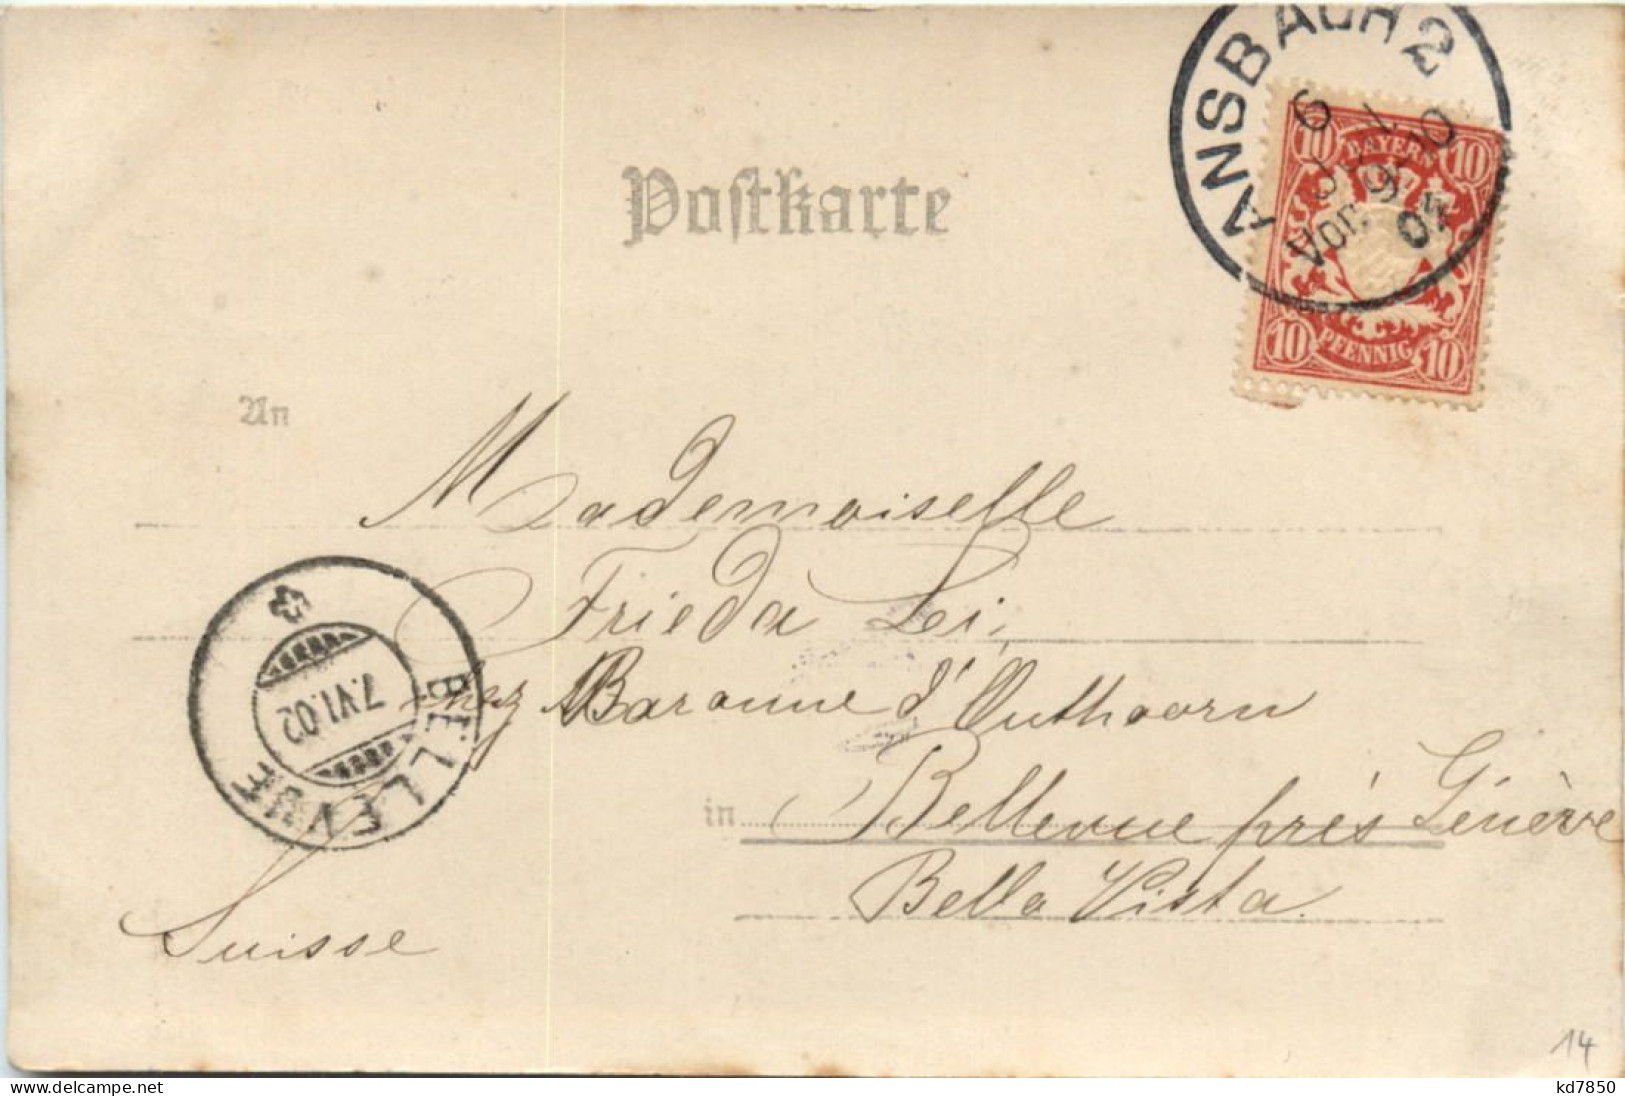 Postkarte
ANSBACH 2
6 JUN.
Vor. 9-10
02
10 BAYERN 10
10 PFENNIG 10
An
Mademoiselle
Frieda Lei,
chez Baronne d'Outhoorn
in Bellevue près Génève
Bella Vista.
Suisse
BELLEVUE
7.VI.02
14
kd7850